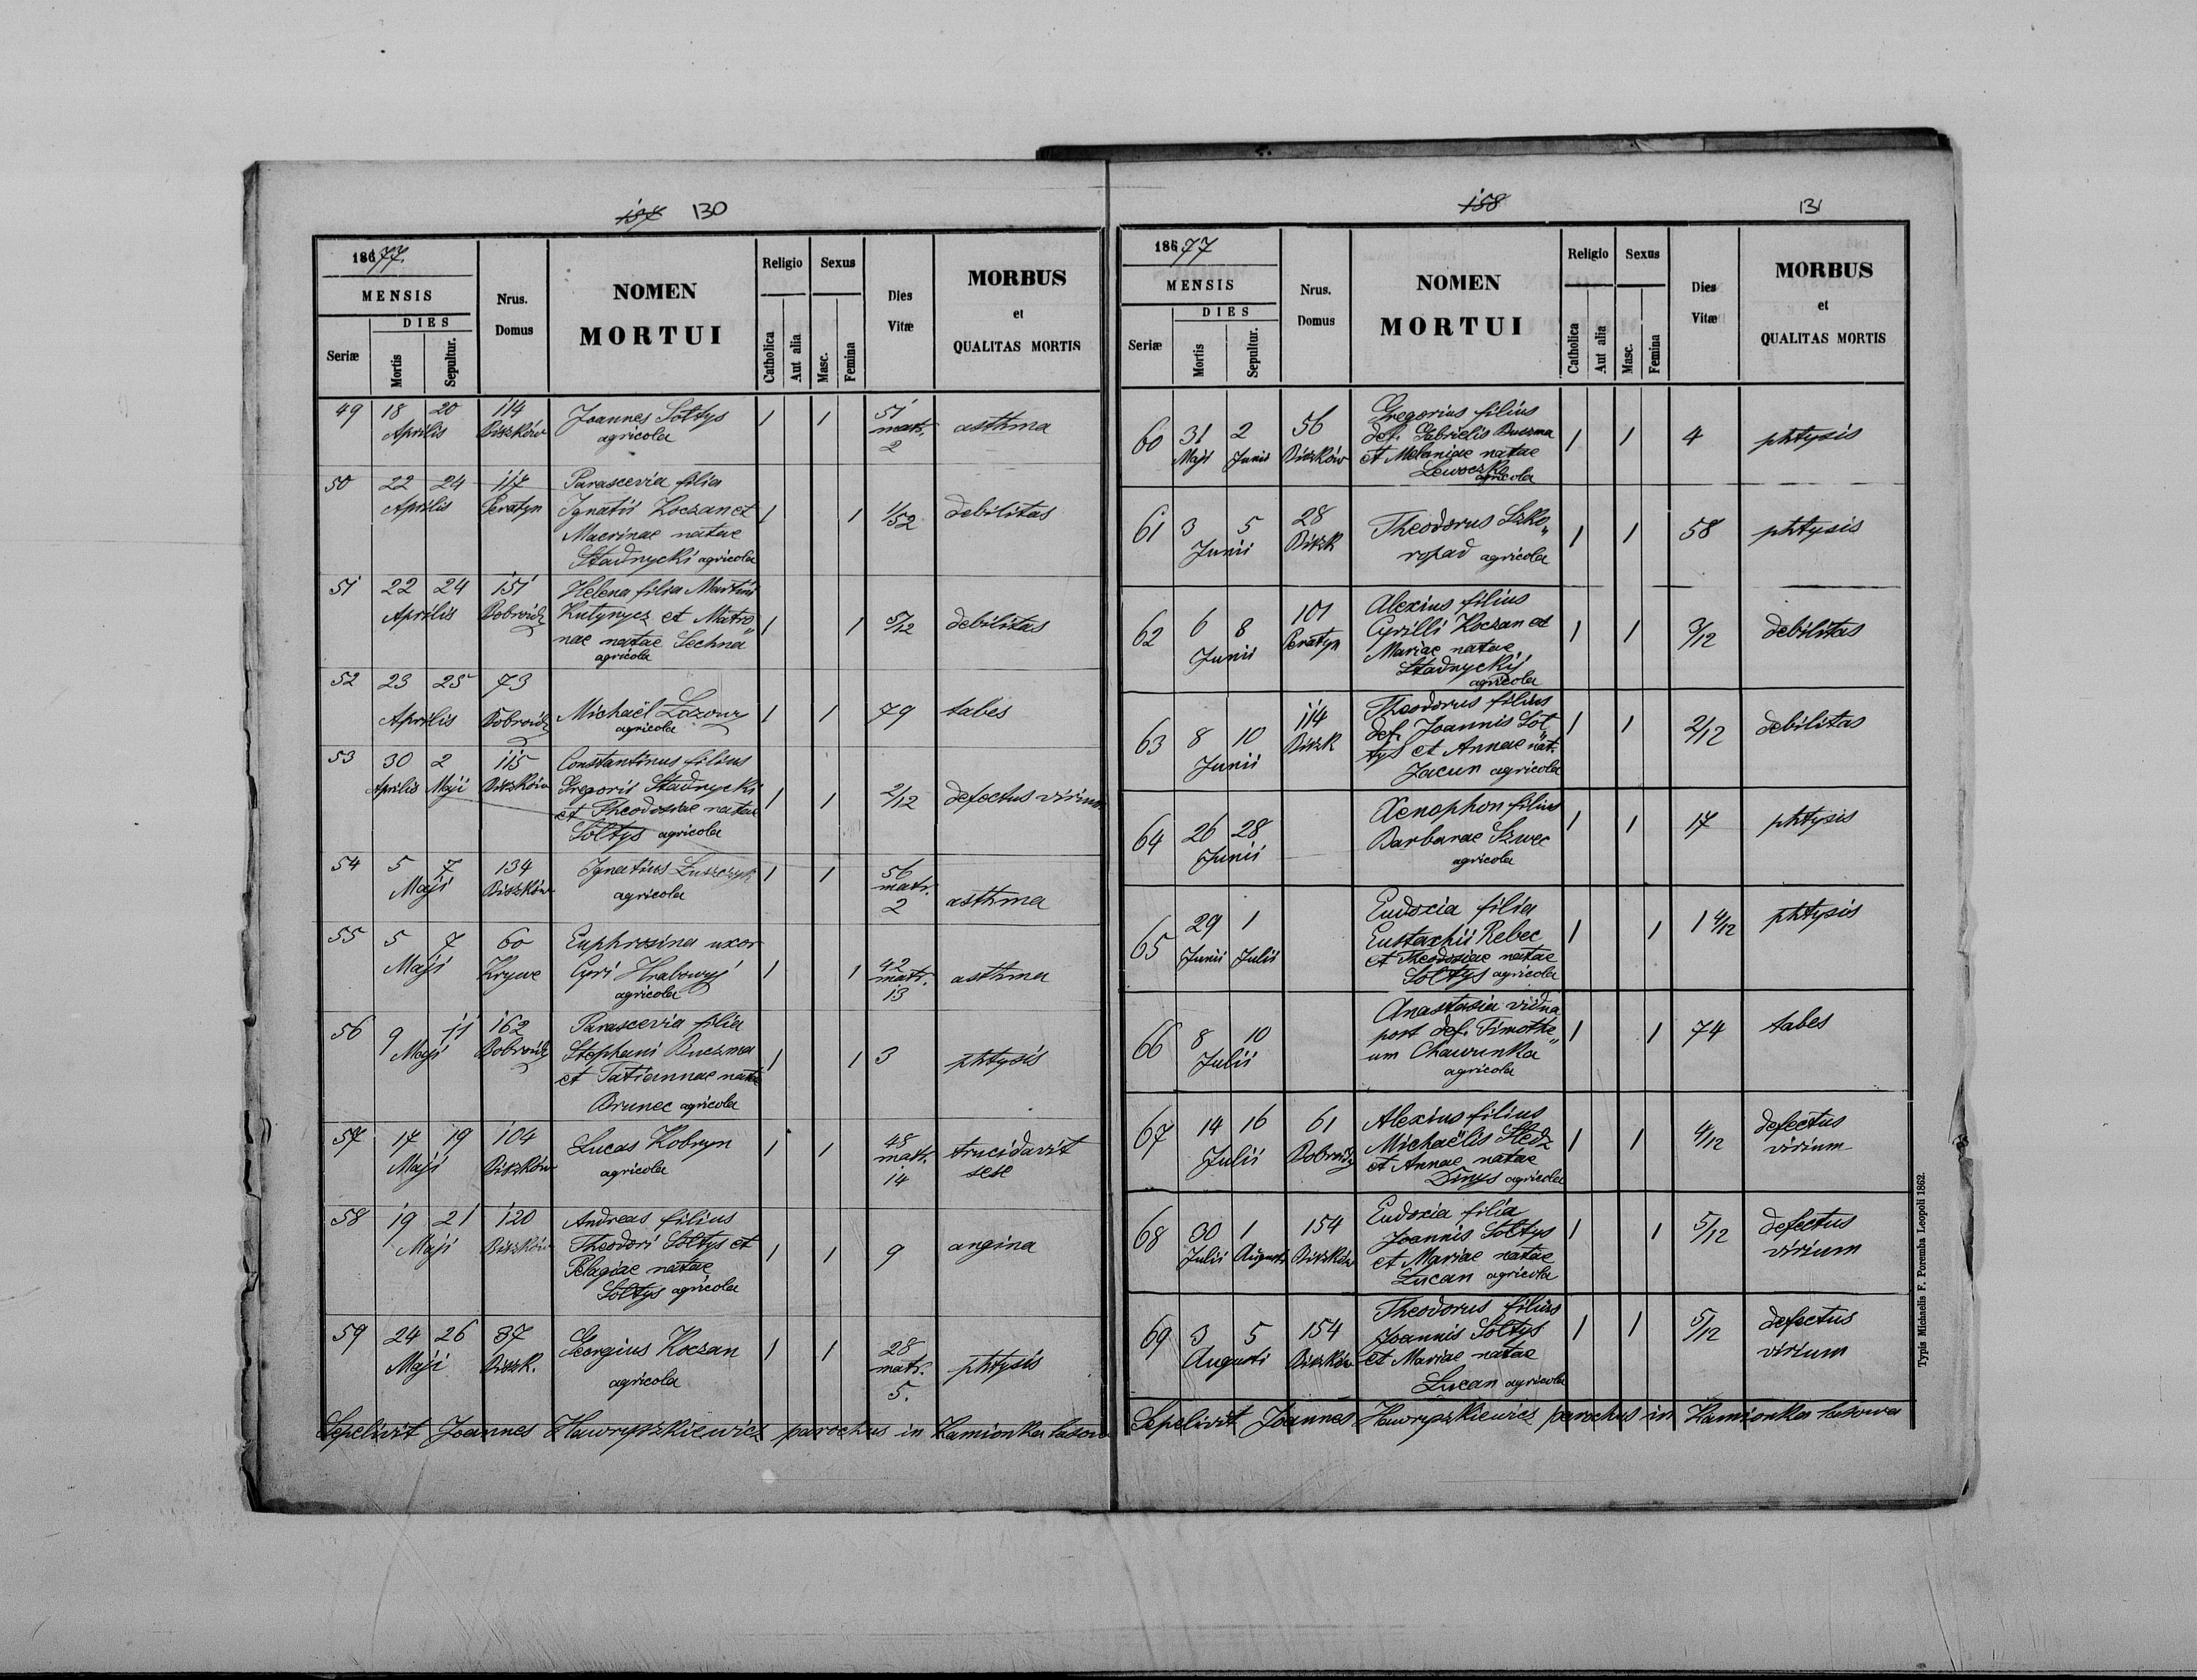 157 130
1867 77.
MENSIS
DIES
Seriæ
Mortis
Sepultur.
Nrus.
Domus
NOMEN
MORTUI
Religio
Catholica
Aut alia
Sexus
Masc.
Femina
Dies
Vitæ
MORBUS
et
QUALITAS MORTIS
49 18 20 114 Joannes Soltys 1 1 51
Aprilis Biszków agricola matr. asthma
2
50 22 24 117 Parascevia filia
Aprilis Peratyn Ignatii Koczan et 1 1 1/52 debilitas
Macrinae natae
Stadnycki agricola
51 22 24 151 Helena filia Martini
Aprilis Bobroidy Kutynycz et Matro„ 1 1 5/12 debilitas
nae natae Sechna
agricola
52 23 25 73
Aprilis Bobroidy Michaël Lozowy 1 1 79 tabes
agricola
53 30 2 115 Constantinus filius
Aprilis Maji Biszków Gregorii Stadnycki 1 1 2/12 defectus virium
et Theodosiae natae
Soltys agricola
54 5 7 134 Ignatius Luszczyk 1 1 56
Maji Biszków agricola matr. asthma
2
55 5 7 60 Euphrosina uxor
Maji Krywe Cyri Hrabowyj 1 1 42
agricola matr. asthma
13
56 9 11 162 Parascevia filia
Maji Bobroidy Stephani Buczma 1 1 3 phtysis
et Tatiannae natae
Brunec agricola
57 17 19 104 Lucas Kobryn 1 1 48 trucidavit
Maji Biszków agricola matr. sese
14
58 19 21 120 Andreas filius
Maji Biszków Theodori Soltys et 1 1 9 angina
Pelagiae natae
Soltys agricola
59 24 26 37 Georgius Koczan 1 1 28
Maji Biszk. agricola matr. phtysis
5.
Sepelivit Joannes Hawryszkiewicz parochus in Kamionka
158 131
186 77
MENSIS
DIES
Seriæ
Mortis
Sepultur.
Nrus.
Domus
NOMEN
MORTUI
Religio
Catholica
Aut alia
Sexus
Masc.
Femina
Dies
Vitæ
MORBUS
et
QUALITAS MORTIS
Gregorius filius
60 31 2 56 def. Gabrielis Buczma 1 1 4 phtysis
Maji Junii Biszków et Melaniae natae
agricola
61 3 5 28 Theodorus Szko„ 1 1 58 phtysis
Junii Biszk ropad agricola
Alexius filius
62 6 8 101 Cyrilli Koczan et 1 1 3/12 debilitas
Junii Peratyn Mariae natae
Stadnyckij
agricola
Theodorus filius
63 8 10 114 def. Joannis Sol„ 1 1 2/12 debilitas
Junii Biszk tys et Annae nat.
Jacun agricola
Xenophon filius
64 26 28 Barbarae Szwec 1 1 17 phtysis
Junii agricola
Eudoxia filia
65 29 1 Eustachii Rebec 1 1 1 4/12 phtysis
Junii Julii et Theodosiae natae
Soltys agricola
Anastasia vidua
66 8 10 post def. Timothe„ 1 1 74 tabes
Julii um Chawunka
agricola
67 14 16 61 Alexius filius 1 1 4/12 defectus
Julii Bobroidy Michaëlis Hedz virium
et Annae natae
Dinys agricola
68 30 1 154 Eudoxia filia 1 1 5/12 defectus
Julii Augusti Biszków Joannis Soltys virium
et Mariae natae
Lucan agricola
69 3 5 154 Theodorus filius 1 1 5/12 defectus
Augusti Biszków Joannis Soltys virium
et Mariae natae
Lucan agricola
Sepelivit Joannes Hawryszkiewicz parochus in Kamionka
Typis Michaelis F. Poremba Leopoli 1862.